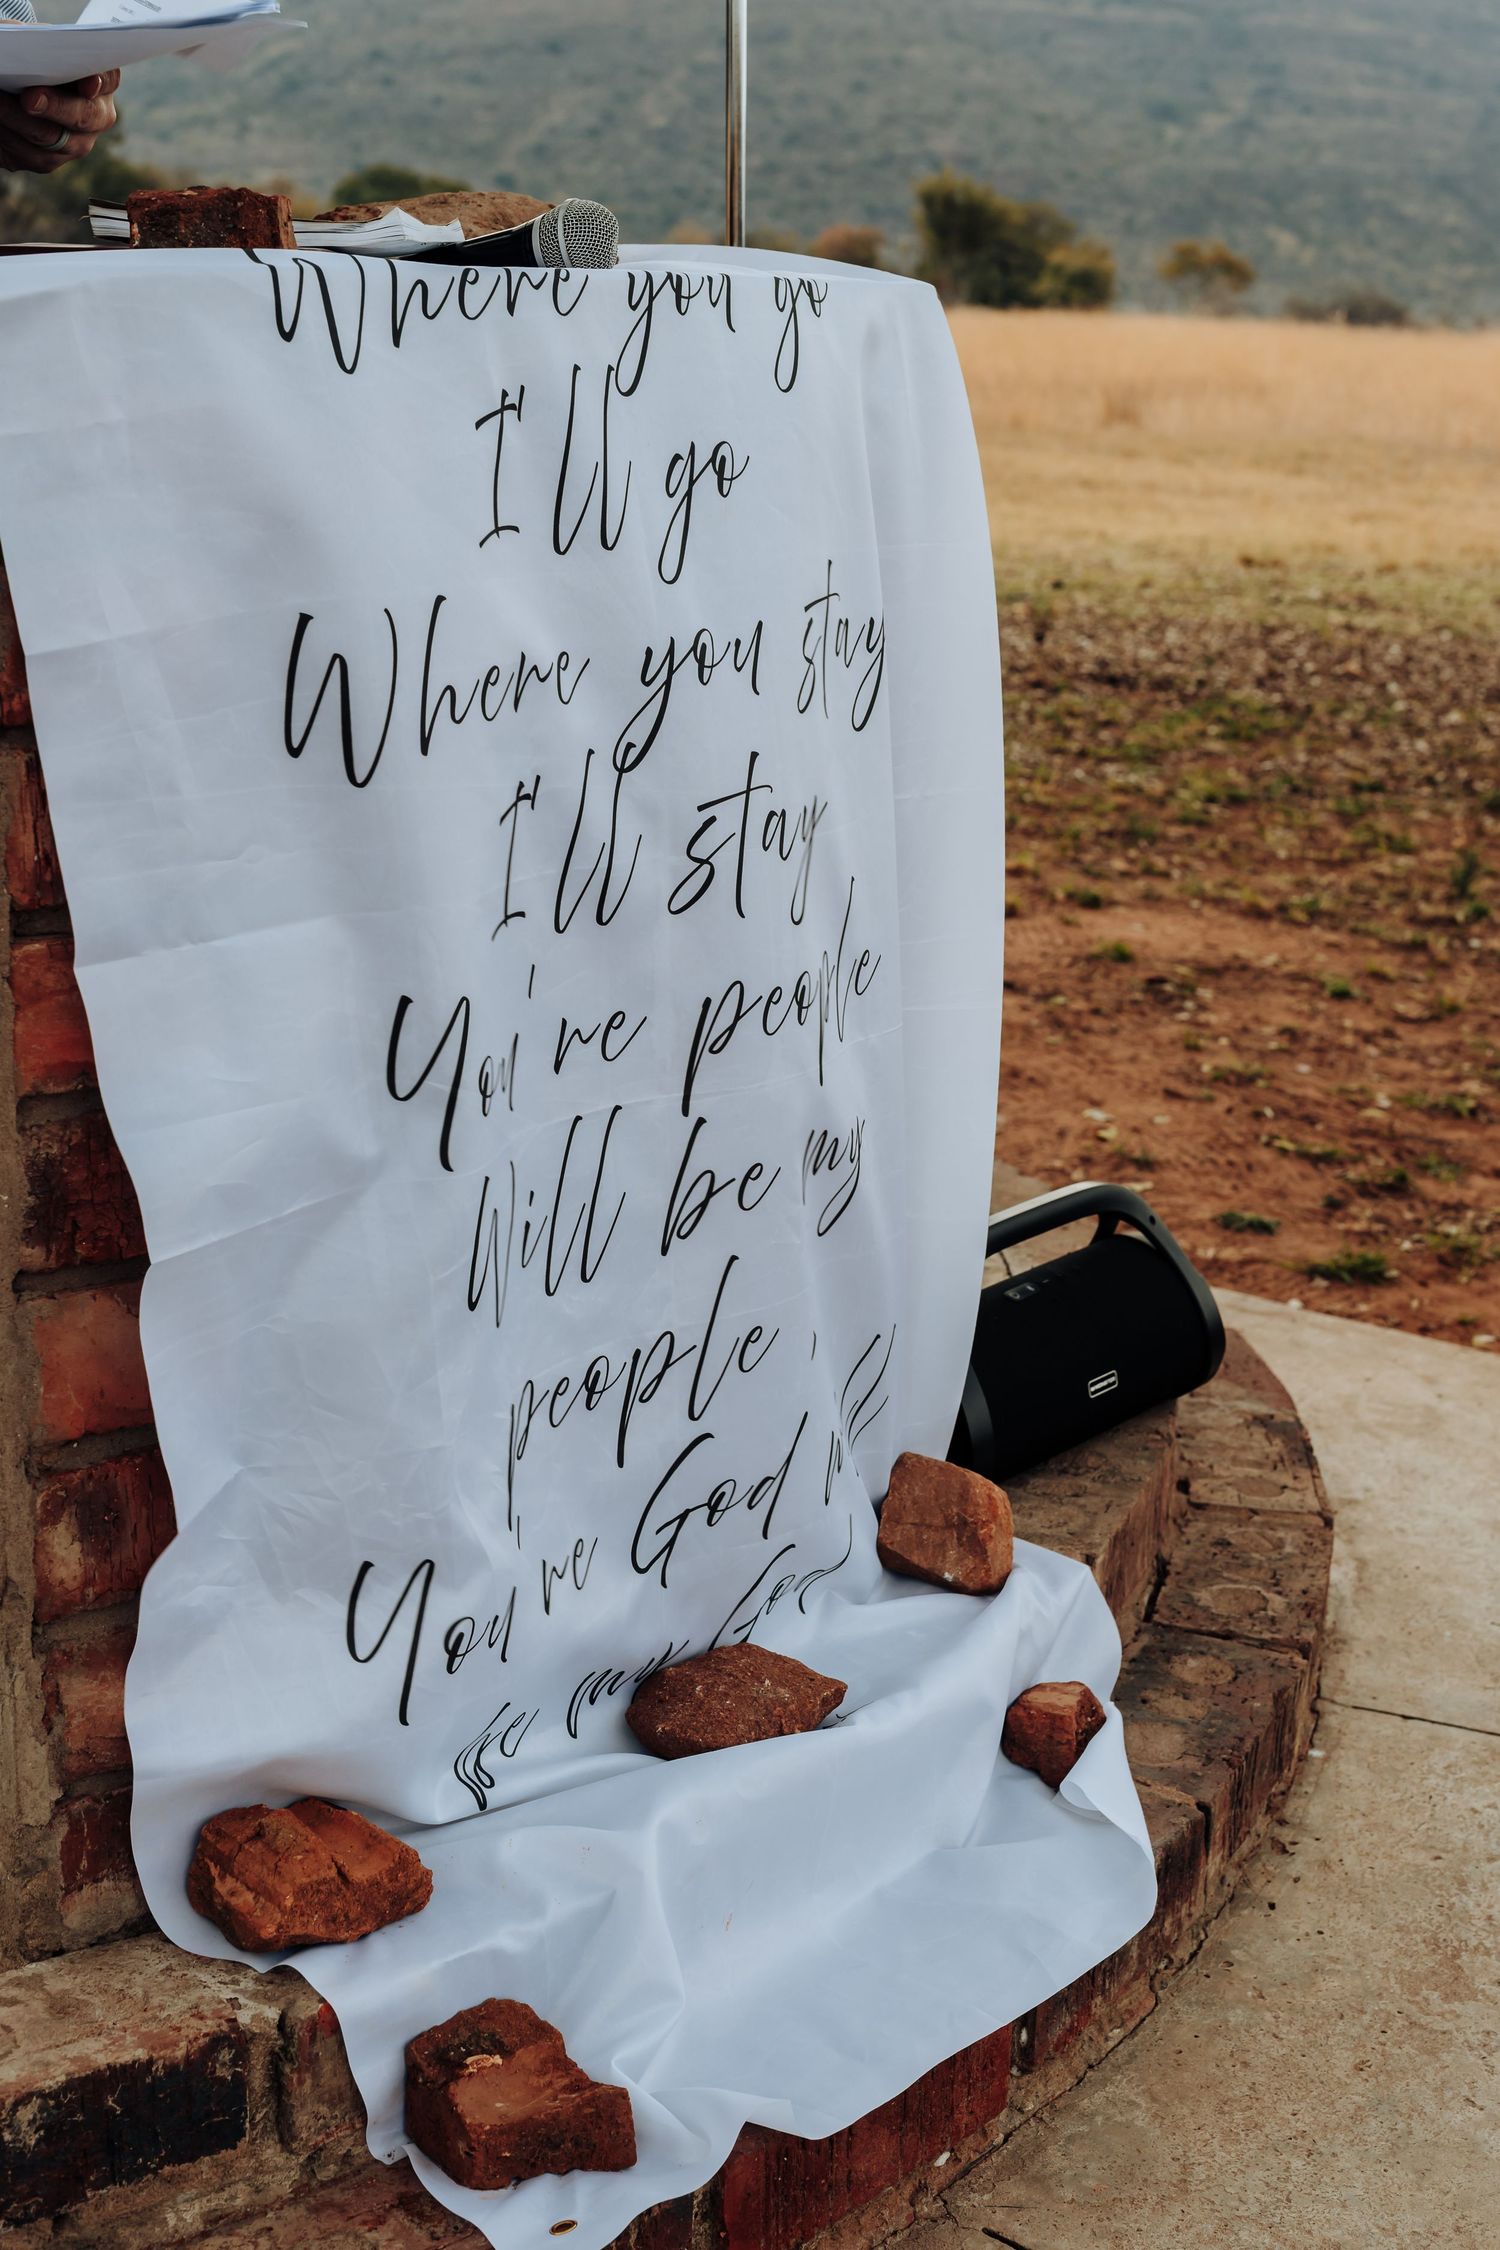 Where you go
I'll go
Where you stay
I'll stay
You're people
Will be my
people,
You're God will
be my God